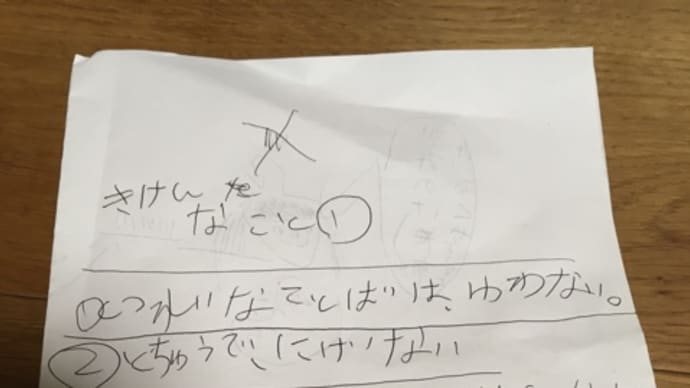 きけん
なこと①
①しつれいなことばは、ゆわない。
②とちゅうでにげない